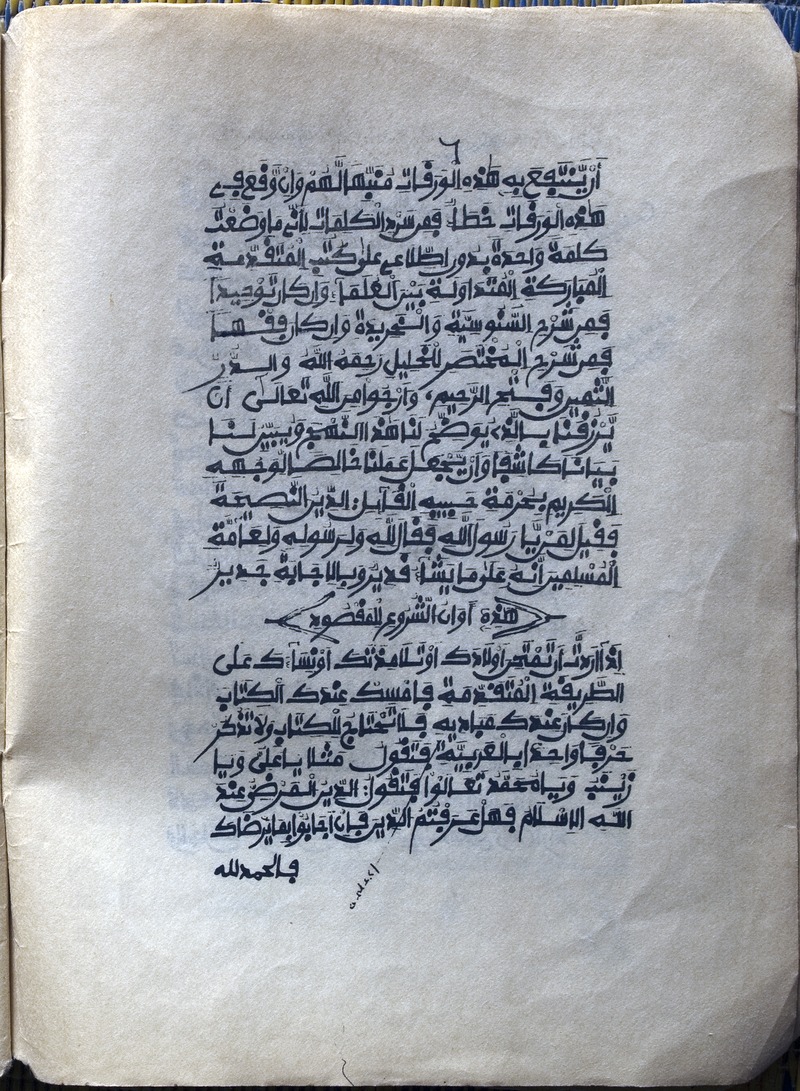 ٦
أَن يَّنتَفِعَ بِهِ هَذِهِ الْوَرَفَاتِ مُنَبِّهًا لَّهُمْ وَإِن وَّفَعَ فِے
هَذِهِ الْوَرَفَاتِ خَطَأٌ فَمِن سَرْدِ الْكَلِمَاتِ لِأَنِّے مَا وَضَعْتُ
كَلِمَةً وَاحِدَةً بِدُونِ اطِّلَاعِے عَلَى كُتُبِ الْمُتَفَدِّمَةِ
الْمُبَارَكَةِ الْمُتَدَاوَلَةِ بَيْنَ الْعُلَمَاءِ وَإِن كَانَ تَوْحِيدًا
فَمِن شَرْحِ السَّنُوسِيَّةِ وَالْخَرِيدَةِ وَإِن كَانَ فِفْهًا
فَمِن شَرْحِ الْمُخْتَصَرِ لِلْخَلِيلِ رَحِمَهُ اللَّهُ وَالدُّرِّ
الثَّمِينِ وَفَتْحِ الرَّحِيمِ، وَأَرْجُوا مِنَ اللَّهِ تَعَالَى أَن
يَّرْزُفَنَا بِالَّذِے يُوَضِّحُ لَنَا هَذَا النَّسْجَ وَيُبَيِّنُ لَنَا
بَيَانًا كَاشِفًا وَأَن يَّجْعَلَ عَمَلَنَا خَالِصًا لِوَجْهِهِ
الْكَرِيمِ بِحُرْمَةِ حَبِيبِهِ الْفَآئِلِ: الدِّينُ النَّصِيحَةُ
فَفِيلَ لِمَن يَّا رَسُولَ اللَّهِ فَفَالَ لِلَّهِ وَلِرَسُولِهِ وَلِعَامَّةِ
الْمُسْلِمِينَ أَنَّهُ عَلَى مَا يَشَاءُ فَدِيرٌ وَبِالْإِجَابَةِ جَدِيرٌ
هَذِهِ أَوَانُ الشُّرُوعِ لِلْمَفْصُودِ
إِذَا أَرَدْتَّ أَن تَمْتَحِنَ أَوْلَادَكَ أَوْ تَلَامِذَتَكَ أَوْ نِسَاءَكَ عَلَى
الطَّرِيفَةِ الْمُتَفَدِّمَةِ فَامْسِكْ عِندَكَ الْكِتَابَ
وَإِن كَانَ عِندَكَ مَبَادِيهِ فَلَا تَحْتَاجُ لِلْكِتَابِ وَلَا تَذْكُرْ
حَرْفًا وَاحِدًا بِالْعَرَبِيَّةِ فَتَفُولُ مَثَلًا يَا عَلِىُّ وَيَا
زَيْنَبُ وَيَا مُحَمَّدُ تَعَالَوْا فَتَفُولُ: الدِّينُ الْمَرْضِىُّ عِندَ
اللَّهِ الْإِسْلَامُ فَهَلْ عَرَفْتُمُ الدِّينَ فَإِنْ أَجَابُوا بِمَا يُرْضَاكَ
فَالْحَمْدُ لِلَّهِ